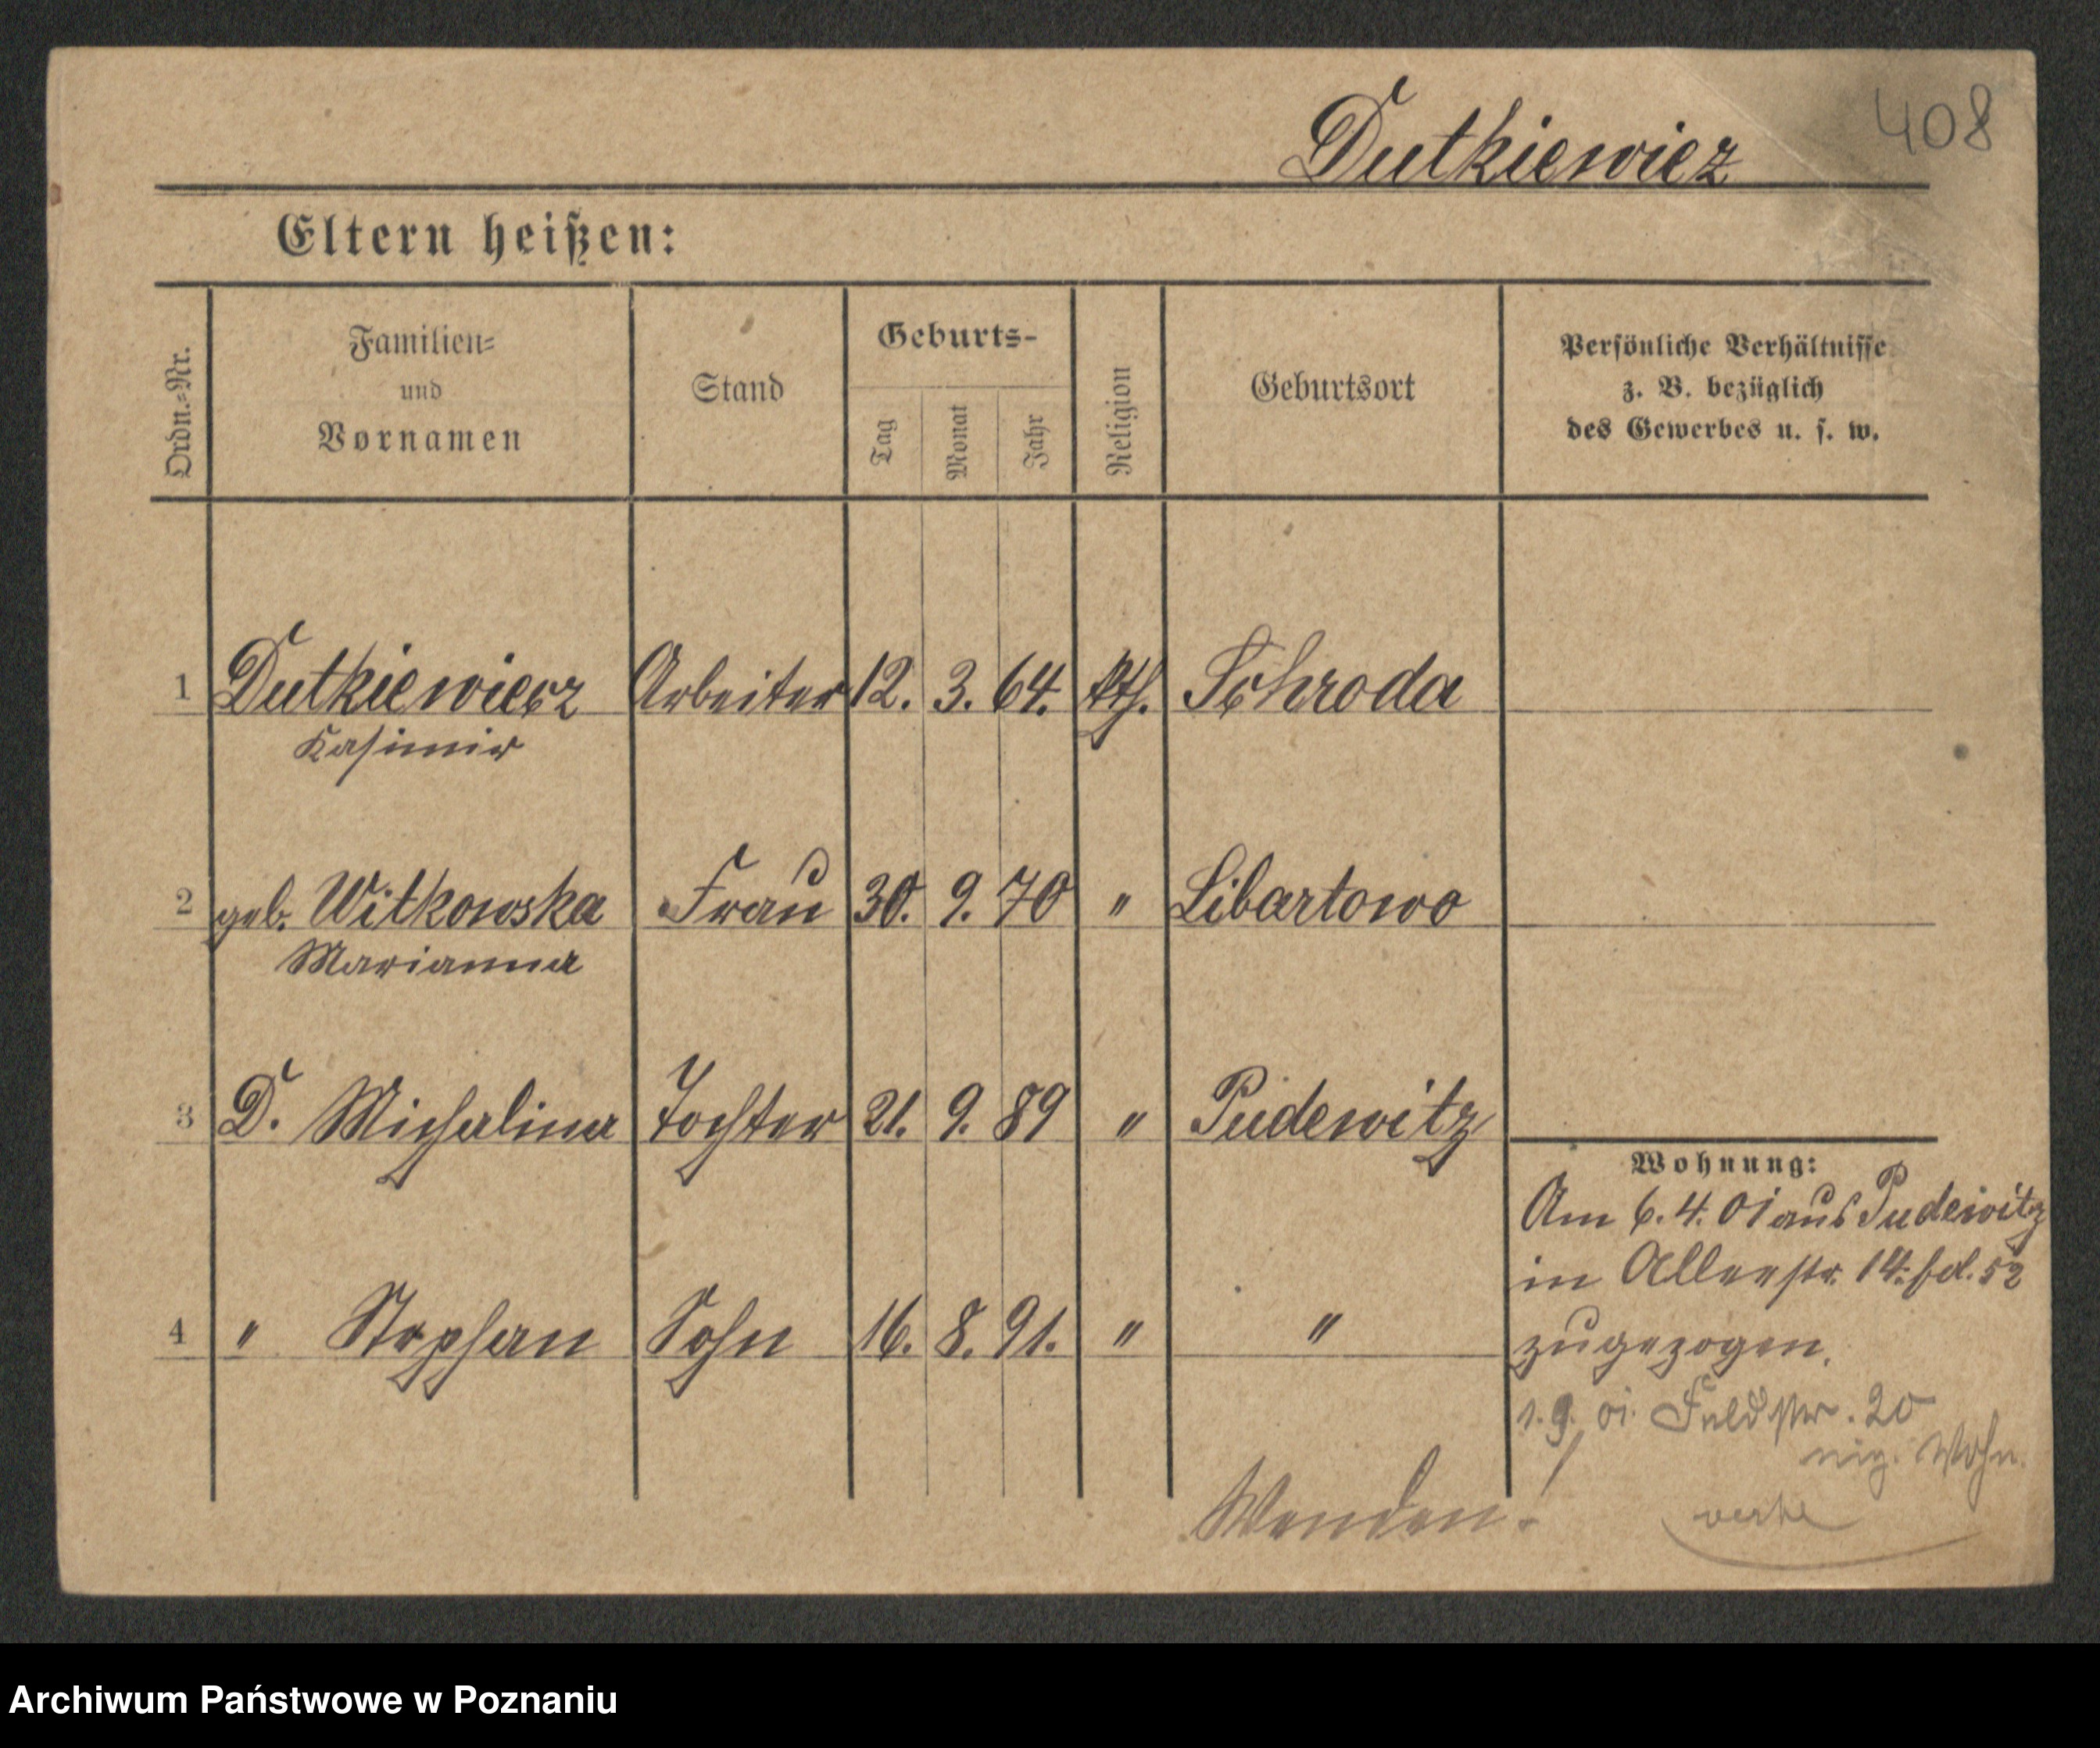 408
Dutkiewicz
Eltern heißen:
Ordn.=Nr.
Familien=
und
Vornamen
Stand
Geburts-
Tag
Monat
Jahr
Religion
Geburtsort
Persönliche Verhältnisse
z. B. bezüglich
des Gewerbes u. s. w.
1 Dutkiewicz Arbeiter 12. 3. 64. kth. Schroda
Kasimir
2 geb. Witkowska Frau 30. 9. 70 " Libartowo
Marianna
3 D. Michalina Tochter 21. 9. 89 " Pudewitz
4 " Stephan Sohn 16. 8. 91. " "
Wohnung:
Am 6. 4. 01 aus Pudewitz
in Allerstr. 14. 52
zugezogen.
1. 9. 01. Feldstr. 20
Wohn.
Wenden!
Archiwum Państwowe w Poznaniu